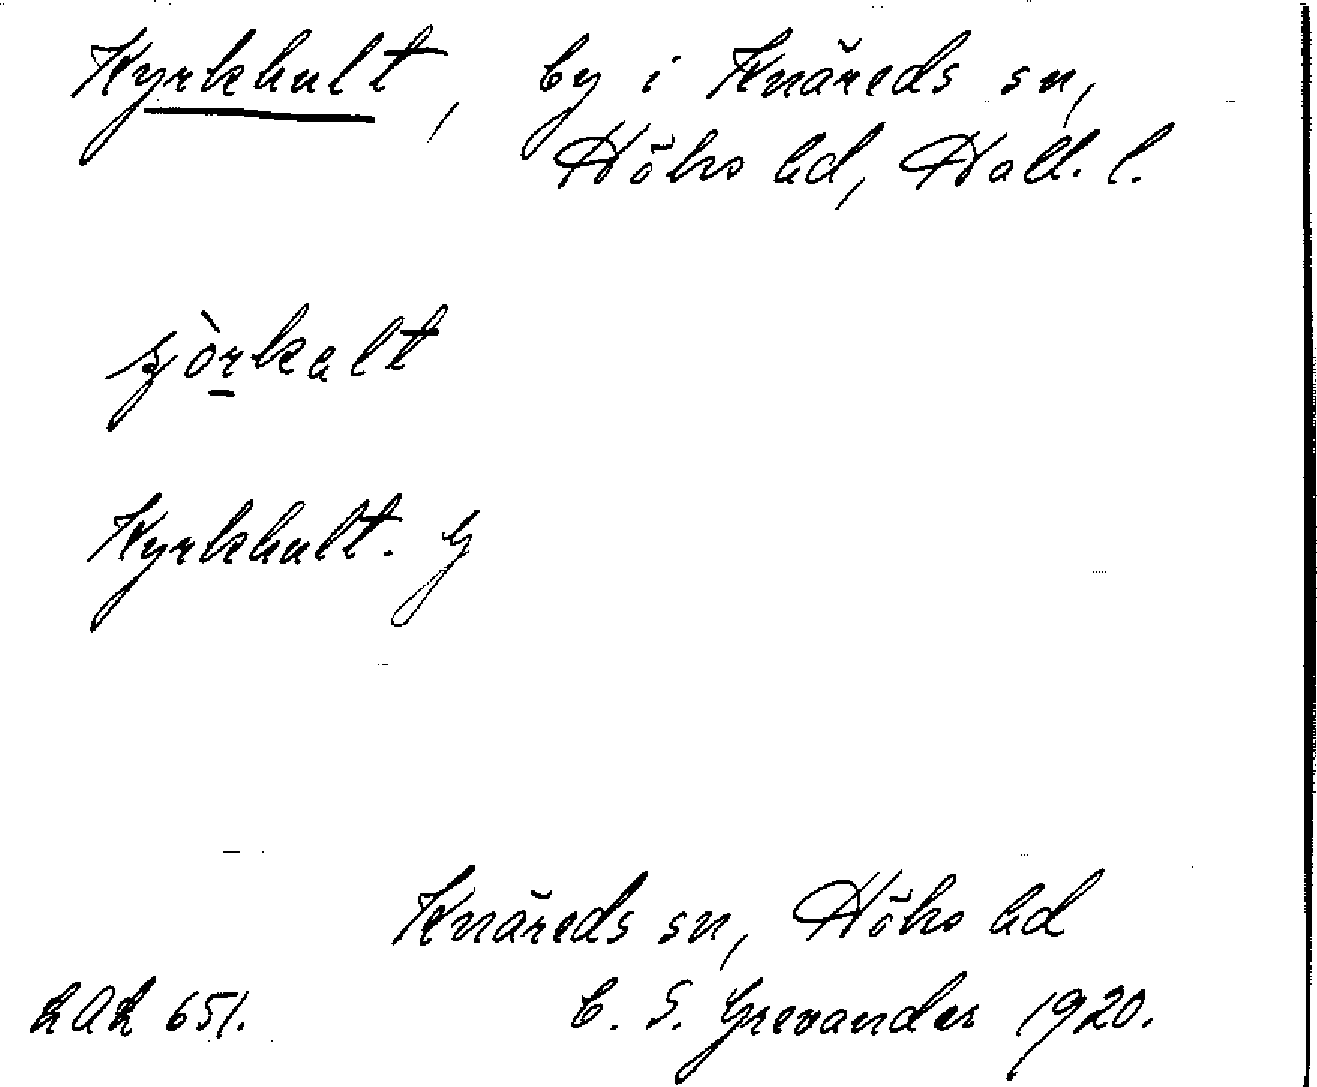 Kyrkhult, by i Knäreds sn,
Höks hd, Hall. l.
Kyrkhult. G
Knäreds sn, Höks hd
LAL 651. C. S. Grevander 1920.